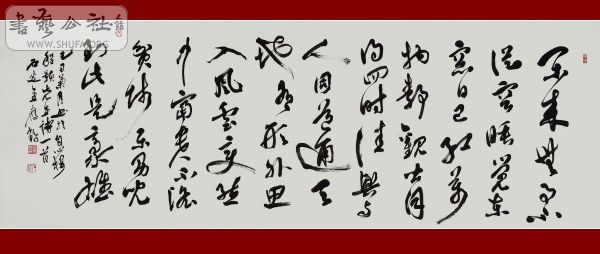 閑来無事不
從容睡覺東
窗日已红萬
物静觀皆自
得四时佳興與
人同道通天
地有形外思
入風雲变態
中富貴不淫
貧賤乐男兒
到此是豪雄
程颢先生诗一首
書藝公社
WWW.SHUFA.ORG